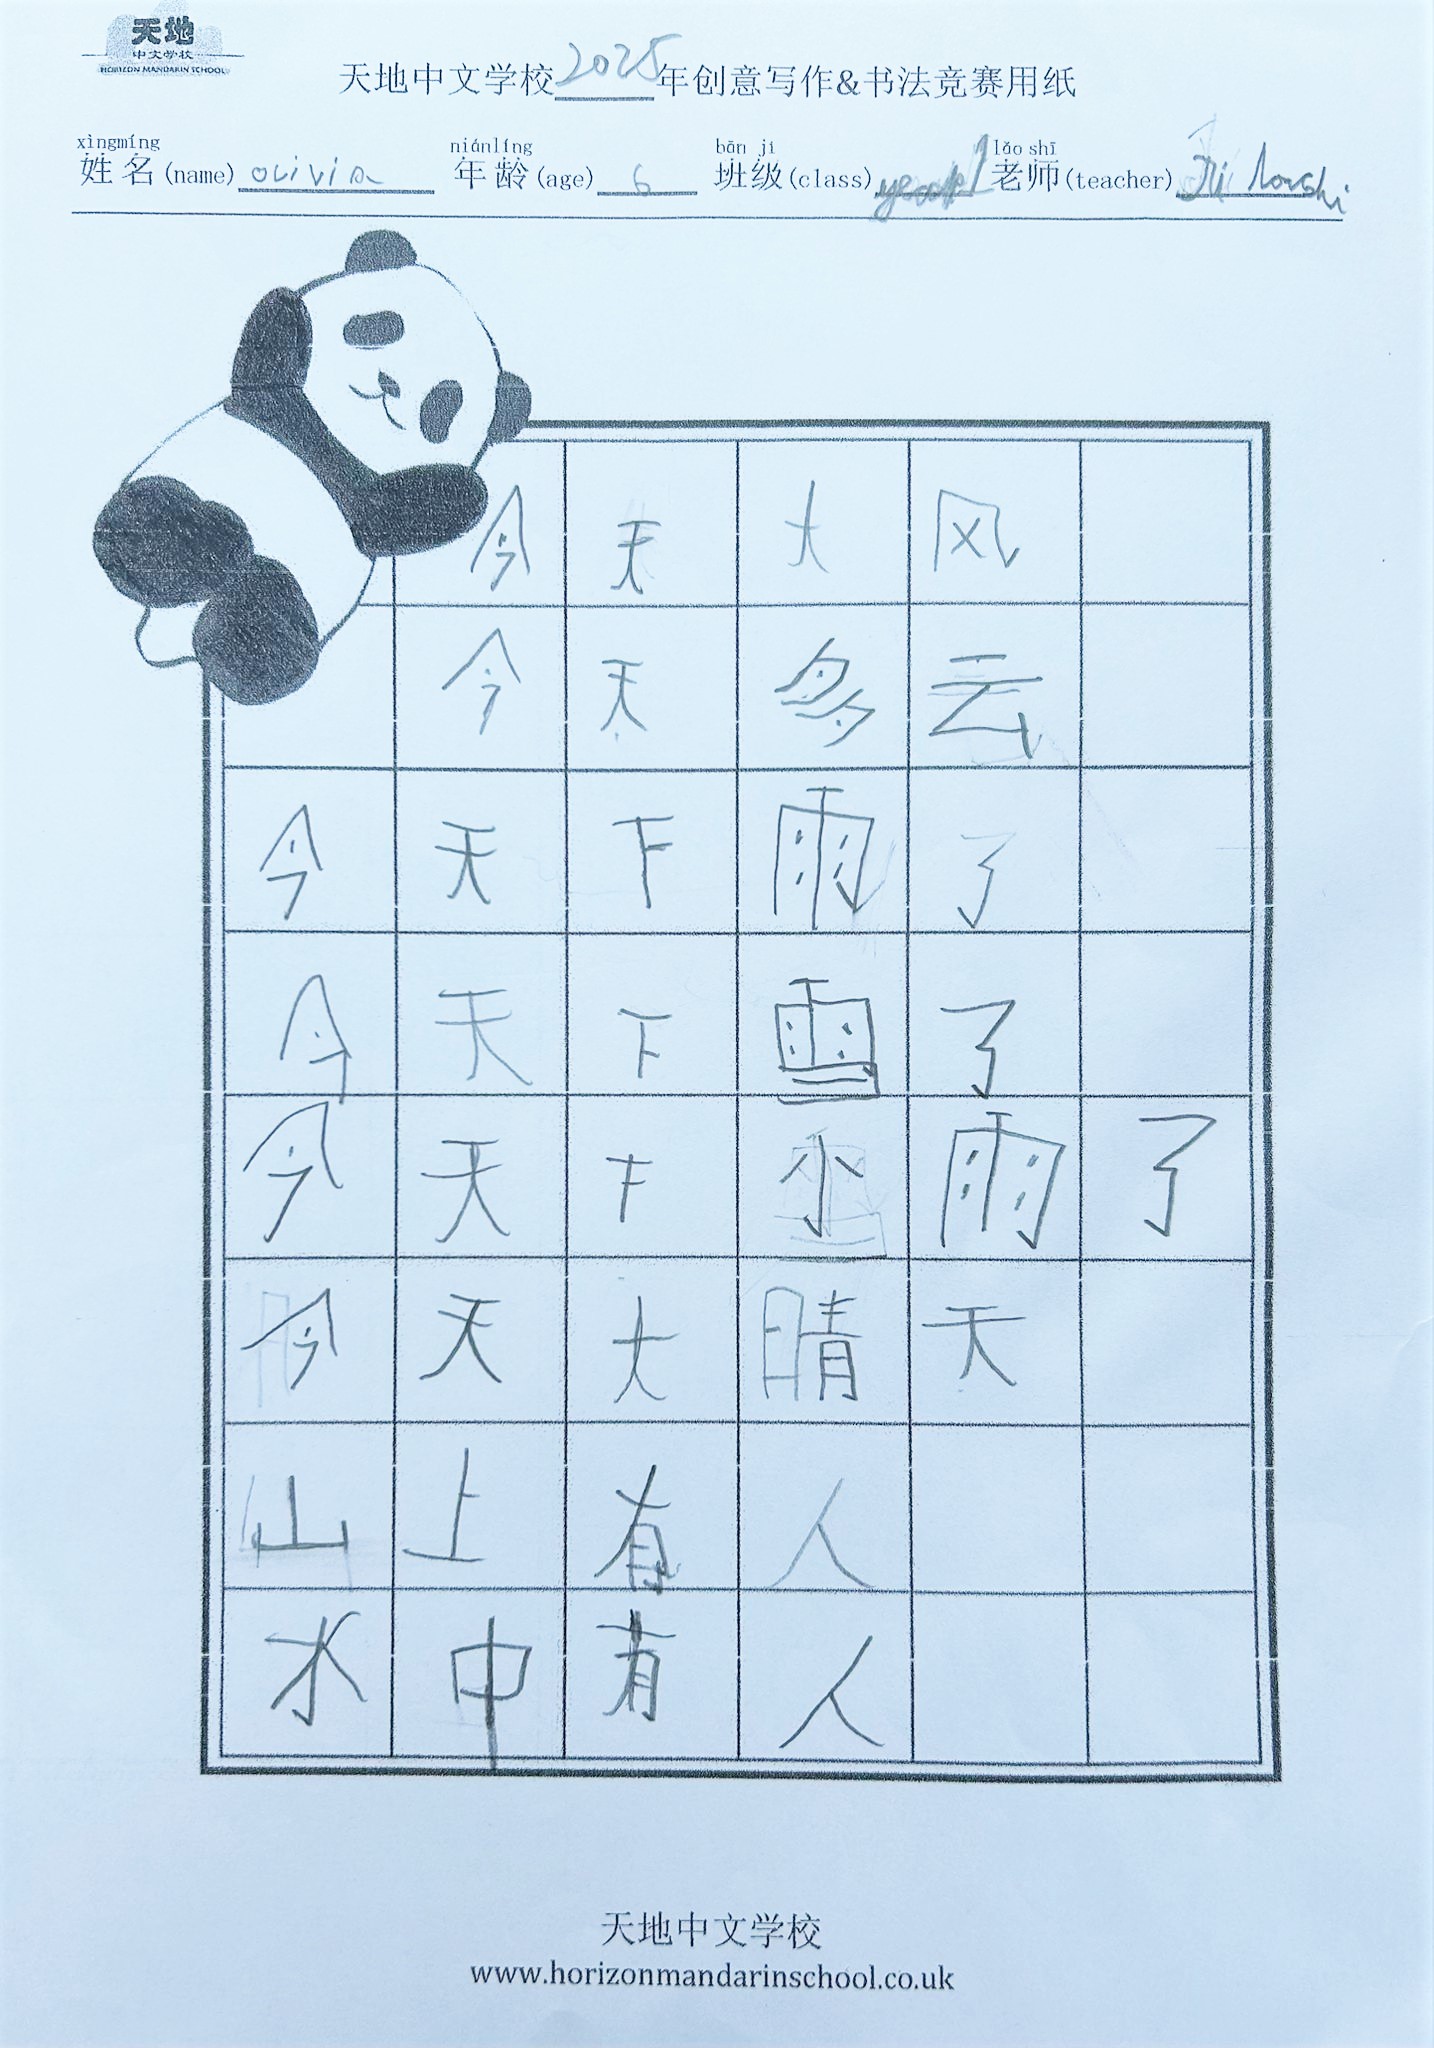 天地
中文学校
HORIZON MANDARIN SCHOOL
天地中文学校2025年创意写作&书法竞赛用纸
xìngmíng niánlíng bān jí lǎo shī
姓名(name) olivia 年龄(age) 6 班级(class) year1 老师(teacher)
今天大风
今天多云
今天下雨了
今天下雪了
今天下小雨了
今天大晴天
山上有人
水中有人
天地中文学校
www.horizonmandarinschool.co.uk